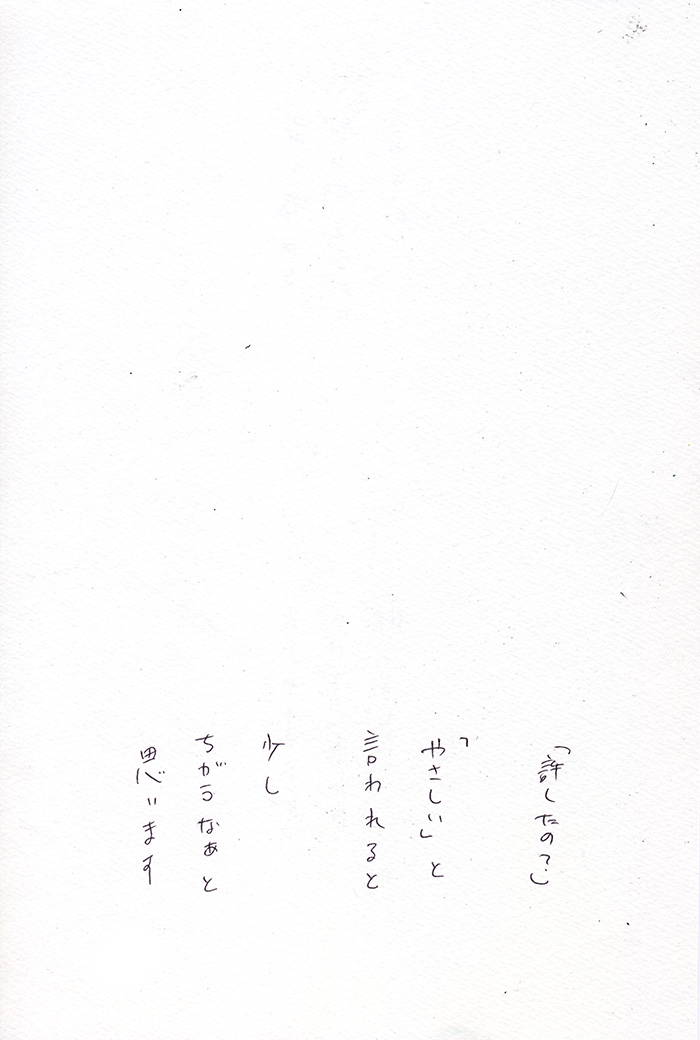 「許したの?」
「やさしい」と
言われると
少し
ちがうなぁと
思います